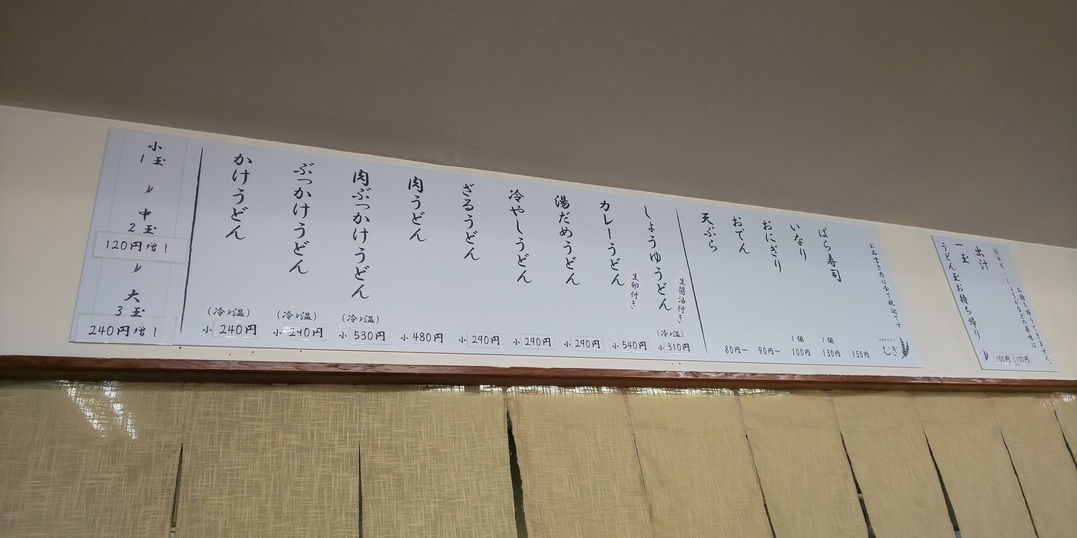 小
1玉
〃
中
2玉
120円増し
〃
大
3玉
240円増し
かけうどん
(冷・温)
小 240円
ぶっかけうどん
(冷・温)
小 240円
肉ぶっかけうどん
(冷・温)
小 530円
肉うどん
小 480円
ざるうどん
小 290円
冷やしうどん
小 290円
湯だめうどん
小 290円
カレーうどん
生卵付き
小 540円
しょうゆうどん
生醤油付き
(冷・温)
小 310円
天ぷら
80円〜
おでん
90円〜
おにぎり
1個
100円
いなり
1個
130円
ばら寿司
150円
むぎ
出汁
一玉
うどん玉お持ち帰り
100円
100円